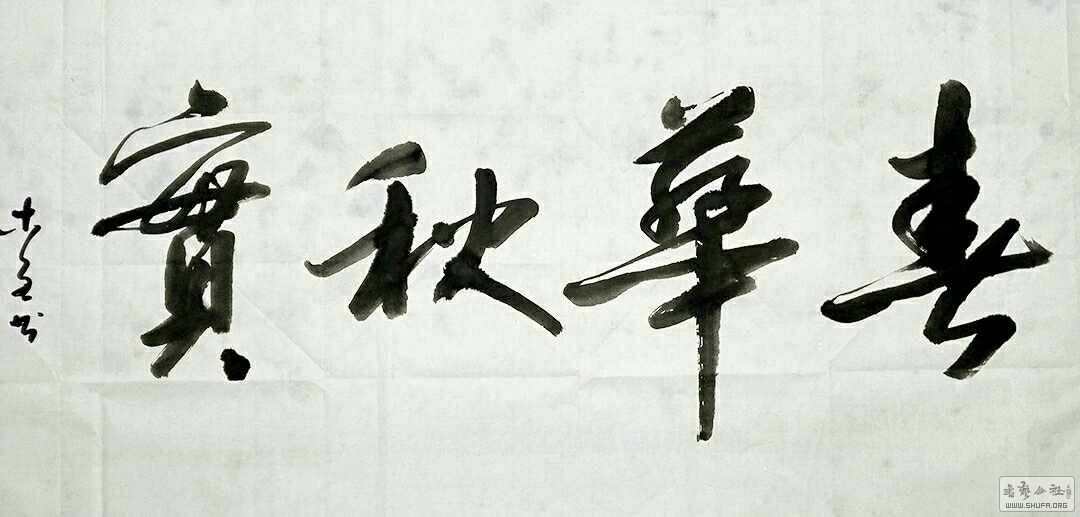 春華秋實
書藝公社
WWW.SHUFA.ORG